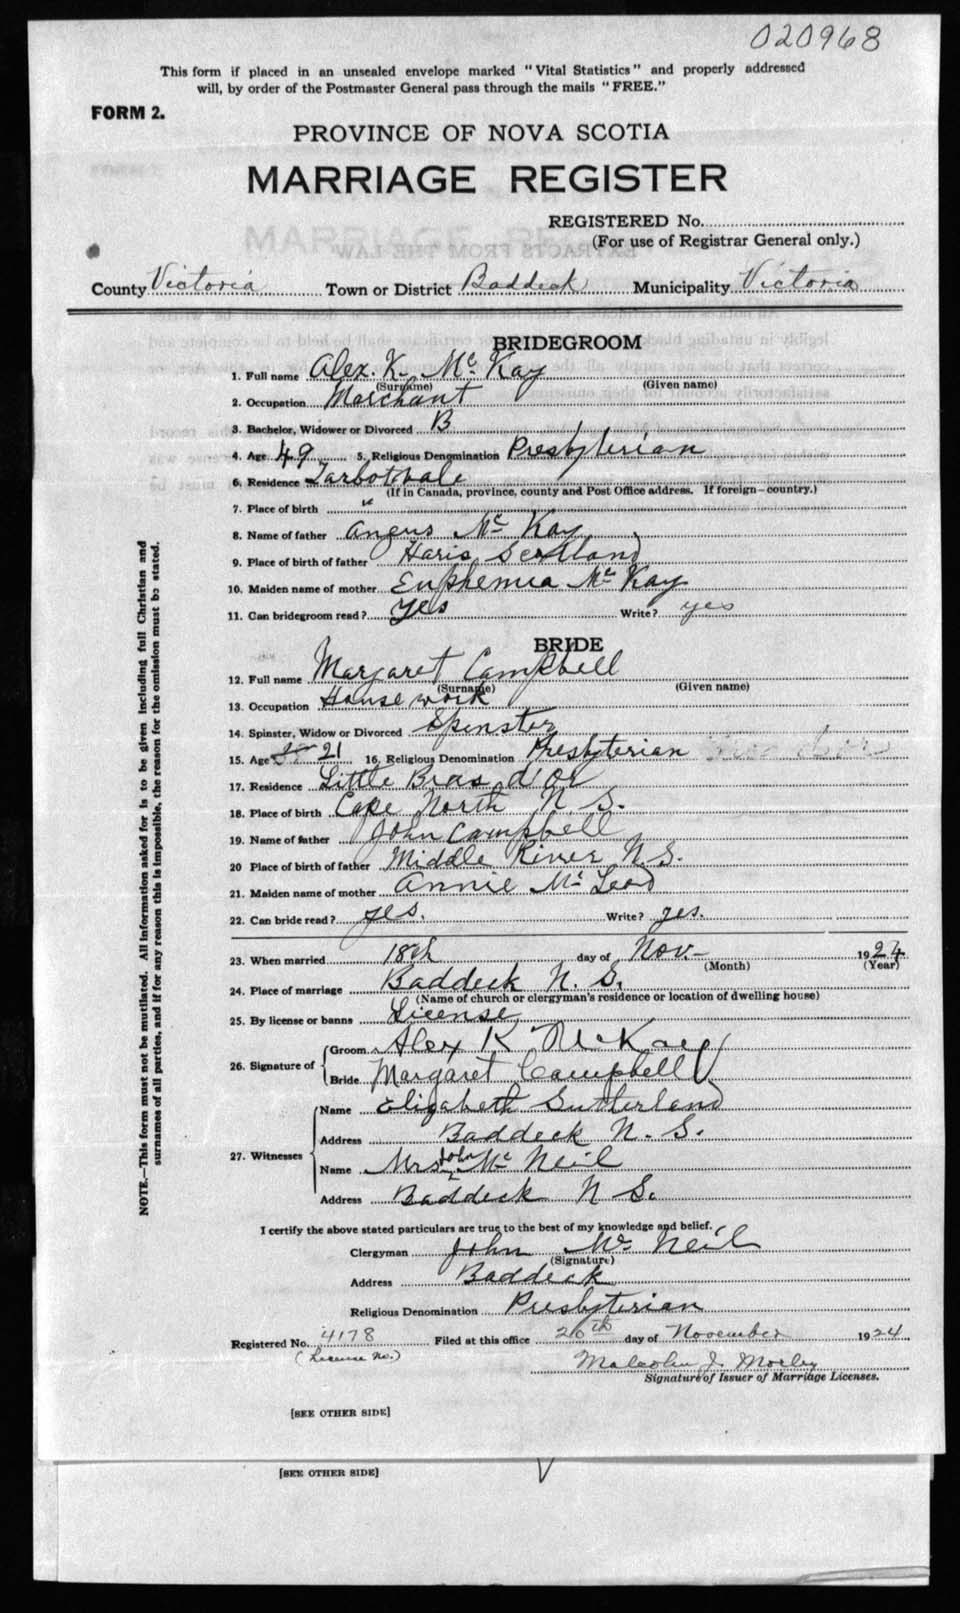 020968
This form if placed in an unsealed envelope marked "Vital Statistics" and properly addressed
will, by order of the Postmaster General pass through the mails "FREE."
FORM 2.
PROVINCE OF NOVA SCOTIA
MARRIAGE REGISTER
REGISTERED No.
(For use of Registrar General only.)
County Victoria Town or District Baddeck Municipality Victoria
BRIDEGROOM
1. Full name Alex. K. Mc Kay
(Surname) (Given name)
2. Occupation Merchant
3. Bachelor, Widower or Divorced B
4. Age 49 5. Religious Denomination Presbyterian
6. Residence Tarbotvale
(If in Canada, province, county and Post Office address. If foreign—country.)
7. Place of birth "
8. Name of father Angus Mc Kay
9. Place of birth of father Haris Scotland
10. Maiden name of mother Euphemia Mc Kay
11. Can bridegroom read? Yes Write? yes
BRIDE
12. Full name Margaret Campbell
(Surname) (Given name)
13. Occupation House work
14. Spinster, Widow or Divorced Spinster
15. Age 21 16. Religious Denomination Presbyterian
17. Residence Little Bras d'Or
18. Place of birth Cape North N S.
19. Name of father John Campbell
20 Place of birth of father Middle River N.S.
21. Maiden name of mother Annie Mc Leod
22. Can bride read? yes. Write? yes.
23. When married 18th day of Nov. 1924
(Month) (Year)
24. Place of marriage Baddeck N. S.
(Name of church or clergyman's residence or location of dwelling house)
25. By license or banns License
26. Signature of Groom Alex K McKay
Bride Margaret Campbell
27. Witnesses Name Elizabeth Sutherland
Address Baddeck N. S.
Name Mrs John Mc Neil
Address Baddeck N S.
I certify the above stated particulars are true to the best of my knowledge and belief.
Clergyman John Mc Neil
(Signature)
Address Baddeck
Religious Denomination Presbyterian
Registered No. 4178 Filed at this office 26th day of November 1924
(License No.)
Malcolm J. Morley
Signature of Issuer of Marriage Licenses.
[SEE OTHER SIDE]
[SEE OTHER SIDE]
NOTE.—This form must not be mutilated. All information asked for is to be given including full Christian and
surnames of all parties, and if for any reason this is impossible, the reason for the omission must be stated.